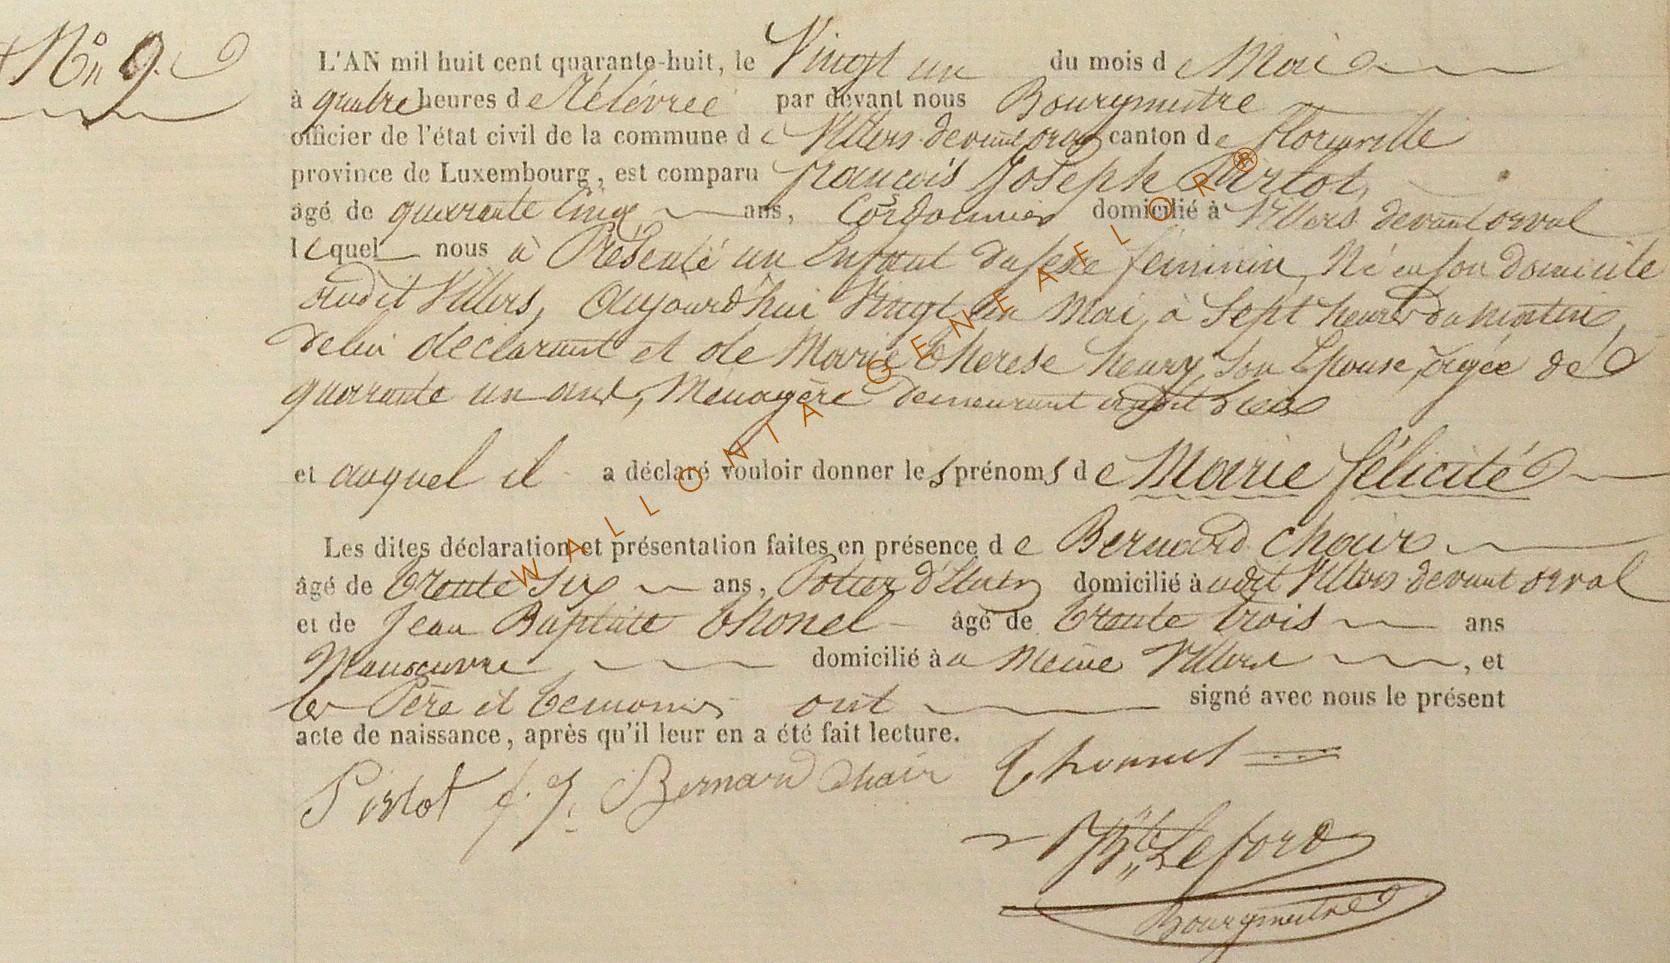 N° 9.
L'AN mil huit cent quarante-huit, le Vingt un du mois de Mai
à quatre heures de Rélévrée par devant nous Bourgmestre
officier de l'état civil de la commune de Villers devant orval canton de florenville
province de Luxembourg, est comparu françois Joseph Pirlot,
âgé de quarante Cinq ans, Cordonnier domicilié à Villers devant orval
lequel nous à Présenté un Enfant du sexe féminin, Né en son domicile
audit Villers, aujourd'hui Vingt un Mai, à Sept heures du matin,
de lui déclarant et de Marie therese henry, Son Epouse, agée de
quarante un ans, Ménagère demeurant audit lieu
et auquel il a déclaré vouloir donner les prénoms de Marie félicité
Les dites déclaration et présentation faites en présence de Bernard Chair
âgé de trente Six ans, Potier d'Etain domicilié à udit Villers devant orval
et de Jean Baptiste thonel âgé de trente trois ans
Manoeuvre domicilié à u Meme Villers, et
les Père et temoins ont signé avec nous le présent
acte de naissance, après qu'il leur en a été fait lecture.
Pirlot f. J. Bernard Chair thonnel
Lefort
Bourgmestre
WALLONIA-GENEAFLOR®